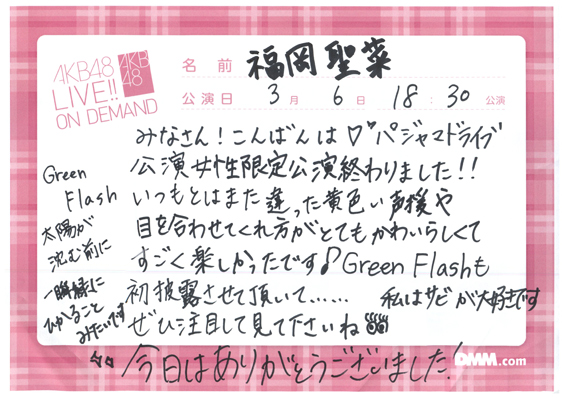 AKB48
LIVE!!
ON DEMAND
AKB
48
名前 福岡聖菜
公演日 3月 6日 18:30 公演
みなさん！こんばんは♡パジャマドライブ
公演女性限定公演終わりました！！
いつもとはまた違った黄色い声援や
目を合わせてくれ方がとてもかわいらしくて
すごく楽しかったです♪Green Flashも
初披露させて頂いて…… 私はサビが大好きです
ぜひ注目して見て下さいね
今日はありがとうございました！
Green
Flash
太陽が
沈む前に
一瞬緑に
ひかること
みたいです
DMM.com